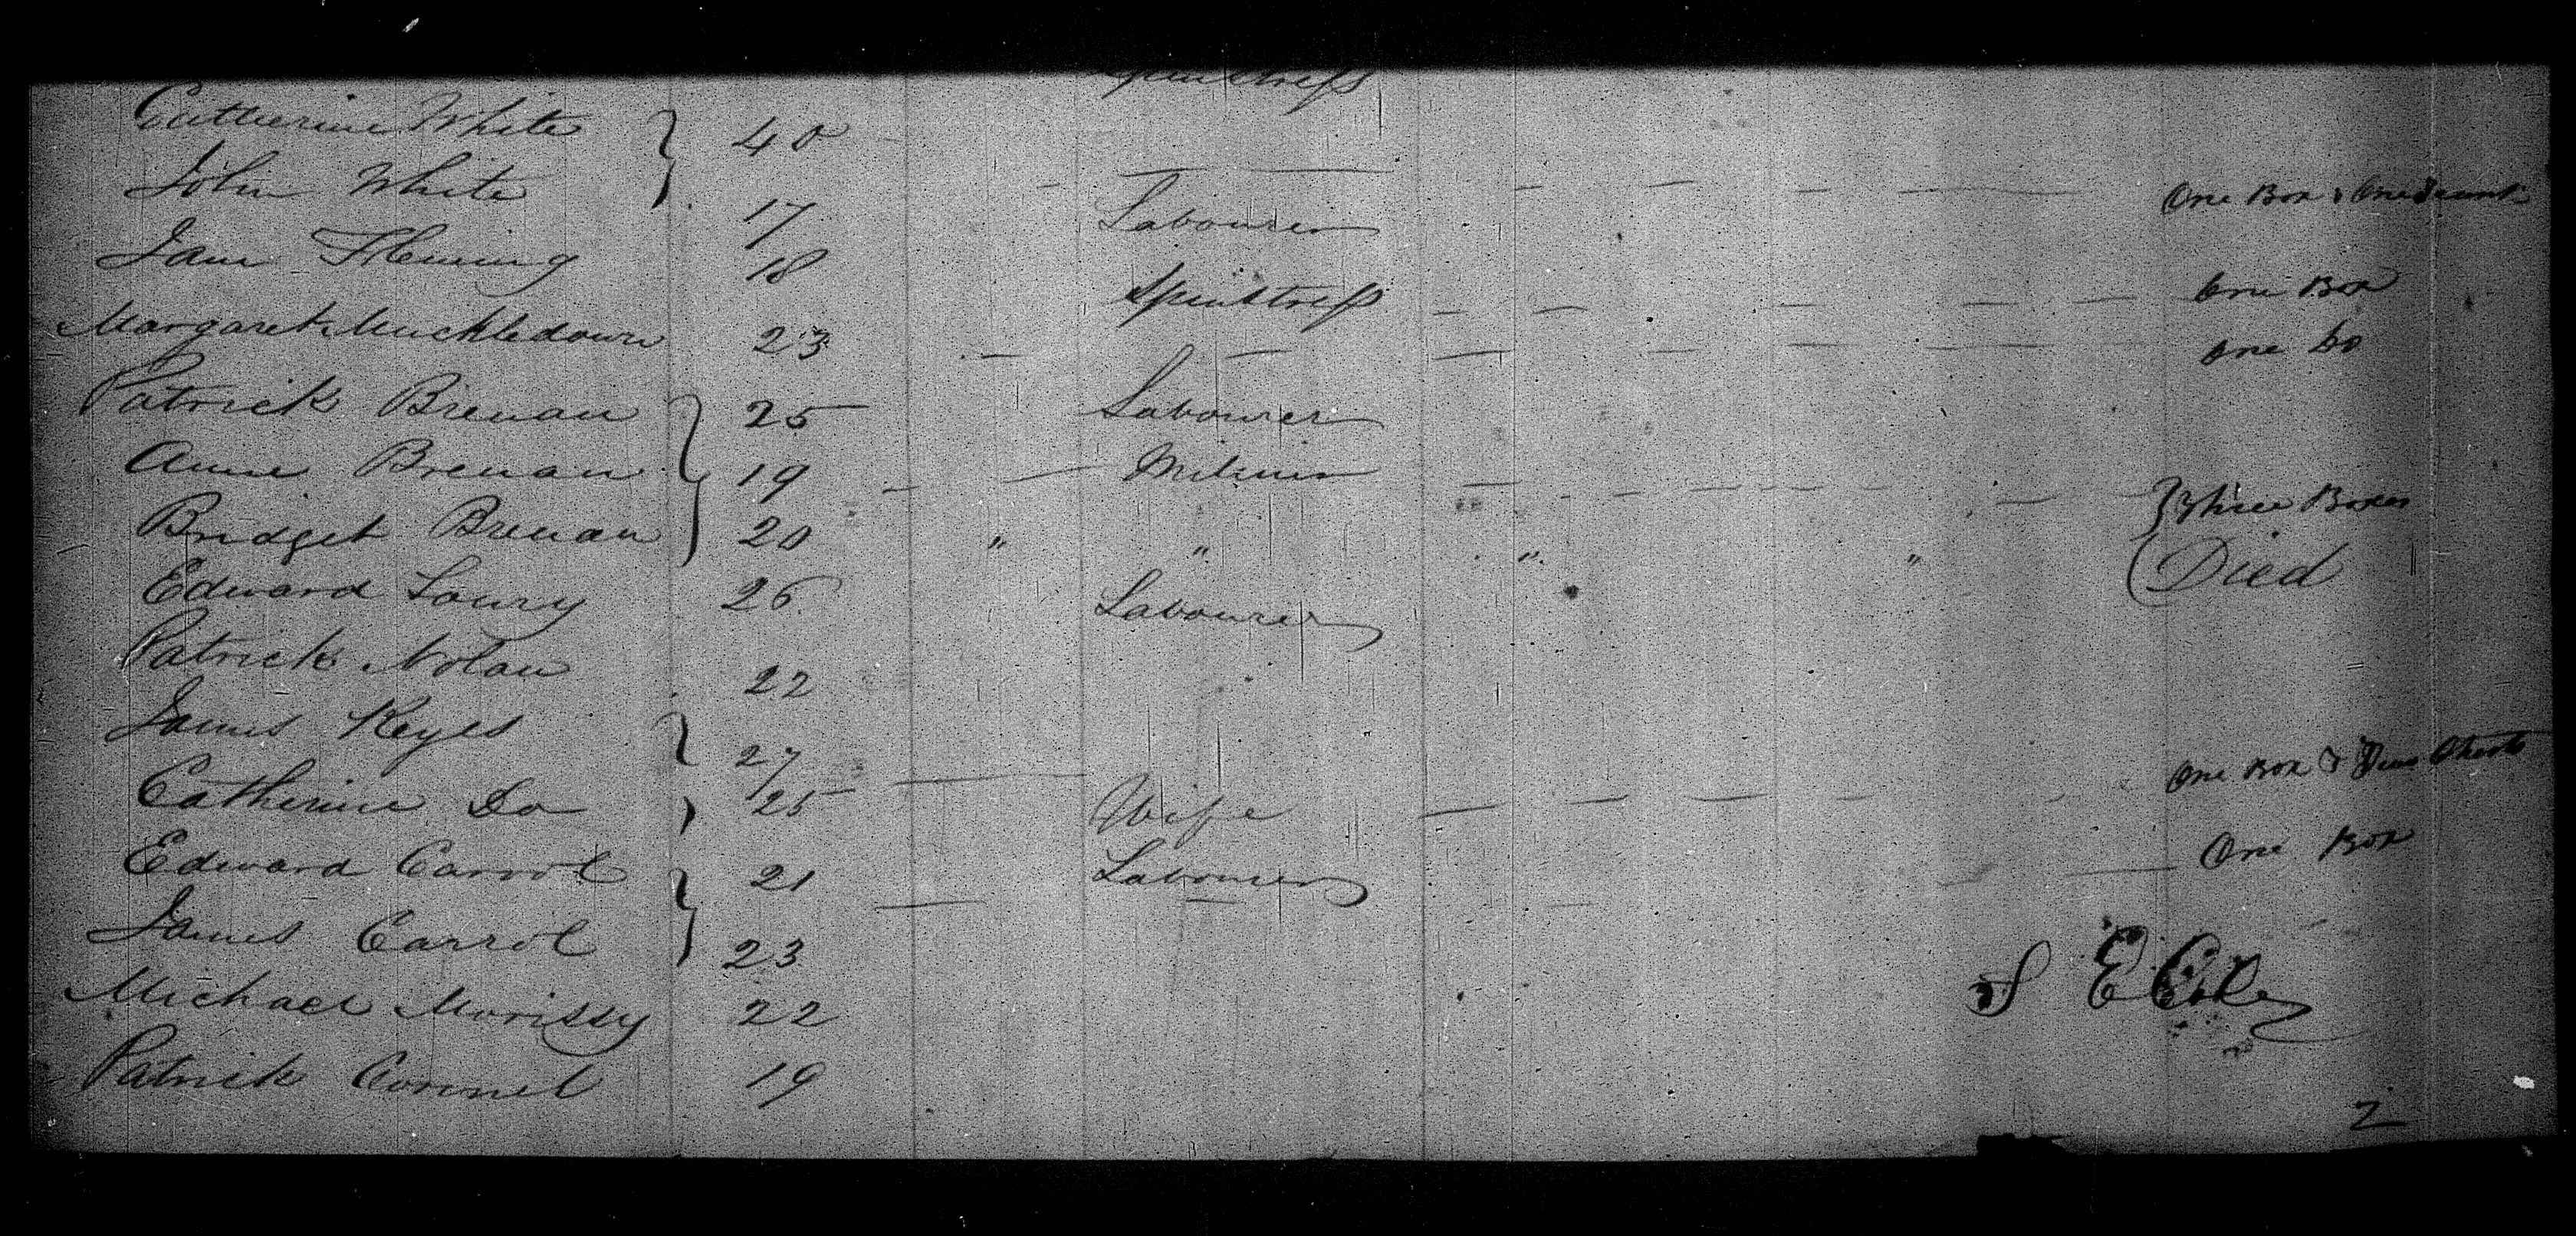 Spinstress
Catherine White } 40
John White 17 Labourer One Box & One
Jane Fleming 18 Spinstress One Box
Margaret Muckledown 23 One Do
Patrick Brenan 25 Labourer
Anne Brenan 19 Miliner } Three Boxes
Bridget Brenan 20 " " " " Died
Edward Loury 26 Labourer
Patrick Nolan 22
James Keyes } 27
Catherine Do 25 Wife One Box &
Edward Carrol 21 Labourer One Box
James Carrol 23
Michael Morissy 22
Patrick Connel 19
2